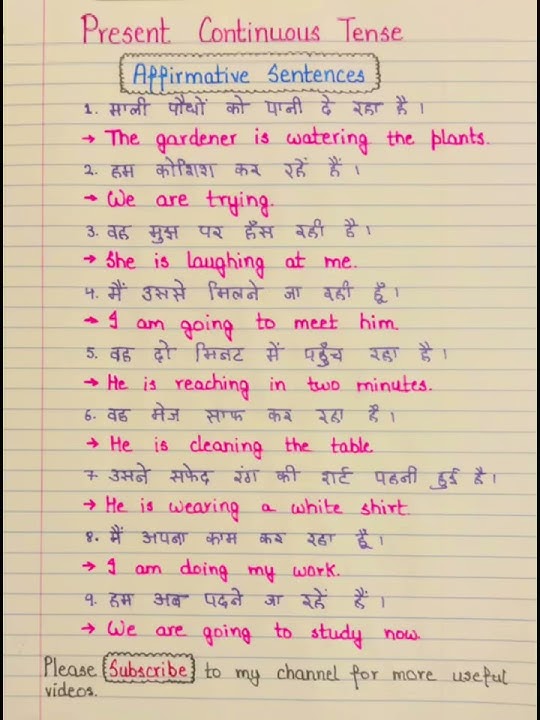 Present Continuous Tense
Affirmative Sentences
1. माली पौधों को पानी दे रहा है ।
→ The gardener is watering the plants.
2. हम कोशिश कर रहें हैं ।
→ We are trying.
3. वह मुझ पर हँस रही है ।
→ She is laughing at me.
4. मैं उससे मिलने जा रही हूँ ।
→ I am going to meet him.
5. वह दो मिनट में पहुँच रहा है ।
→ He is reaching in two minutes.
6. वह मेज साफ कर रहा है ।
→ He is cleaning the table
7 उसने सफेद रंग की शर्ट पहनी हुई है ।
→ He is wearing a white shirt.
8. मैं अपना काम कर रहा हूँ ।
→ I am doing my work.
9. हम अब पढ़ने जा रहें हैं ।
→ We are going to study now.
Please Subscribe to my channel for more useful
videos.